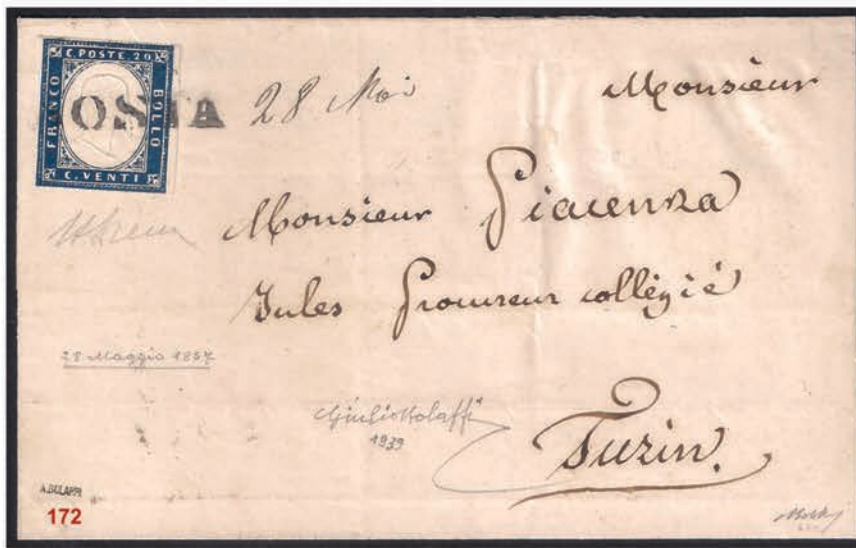 C. POSTE. 20
FRANCO
BOLLO
C. VENTI
OSTA
28 Mai
Monsieur
Monsieur Piacenza
Jules Procureur collégié
Turin.
28 Maggio 1857
Giulio Bolaffi
1939
A. BOLAFFI
172